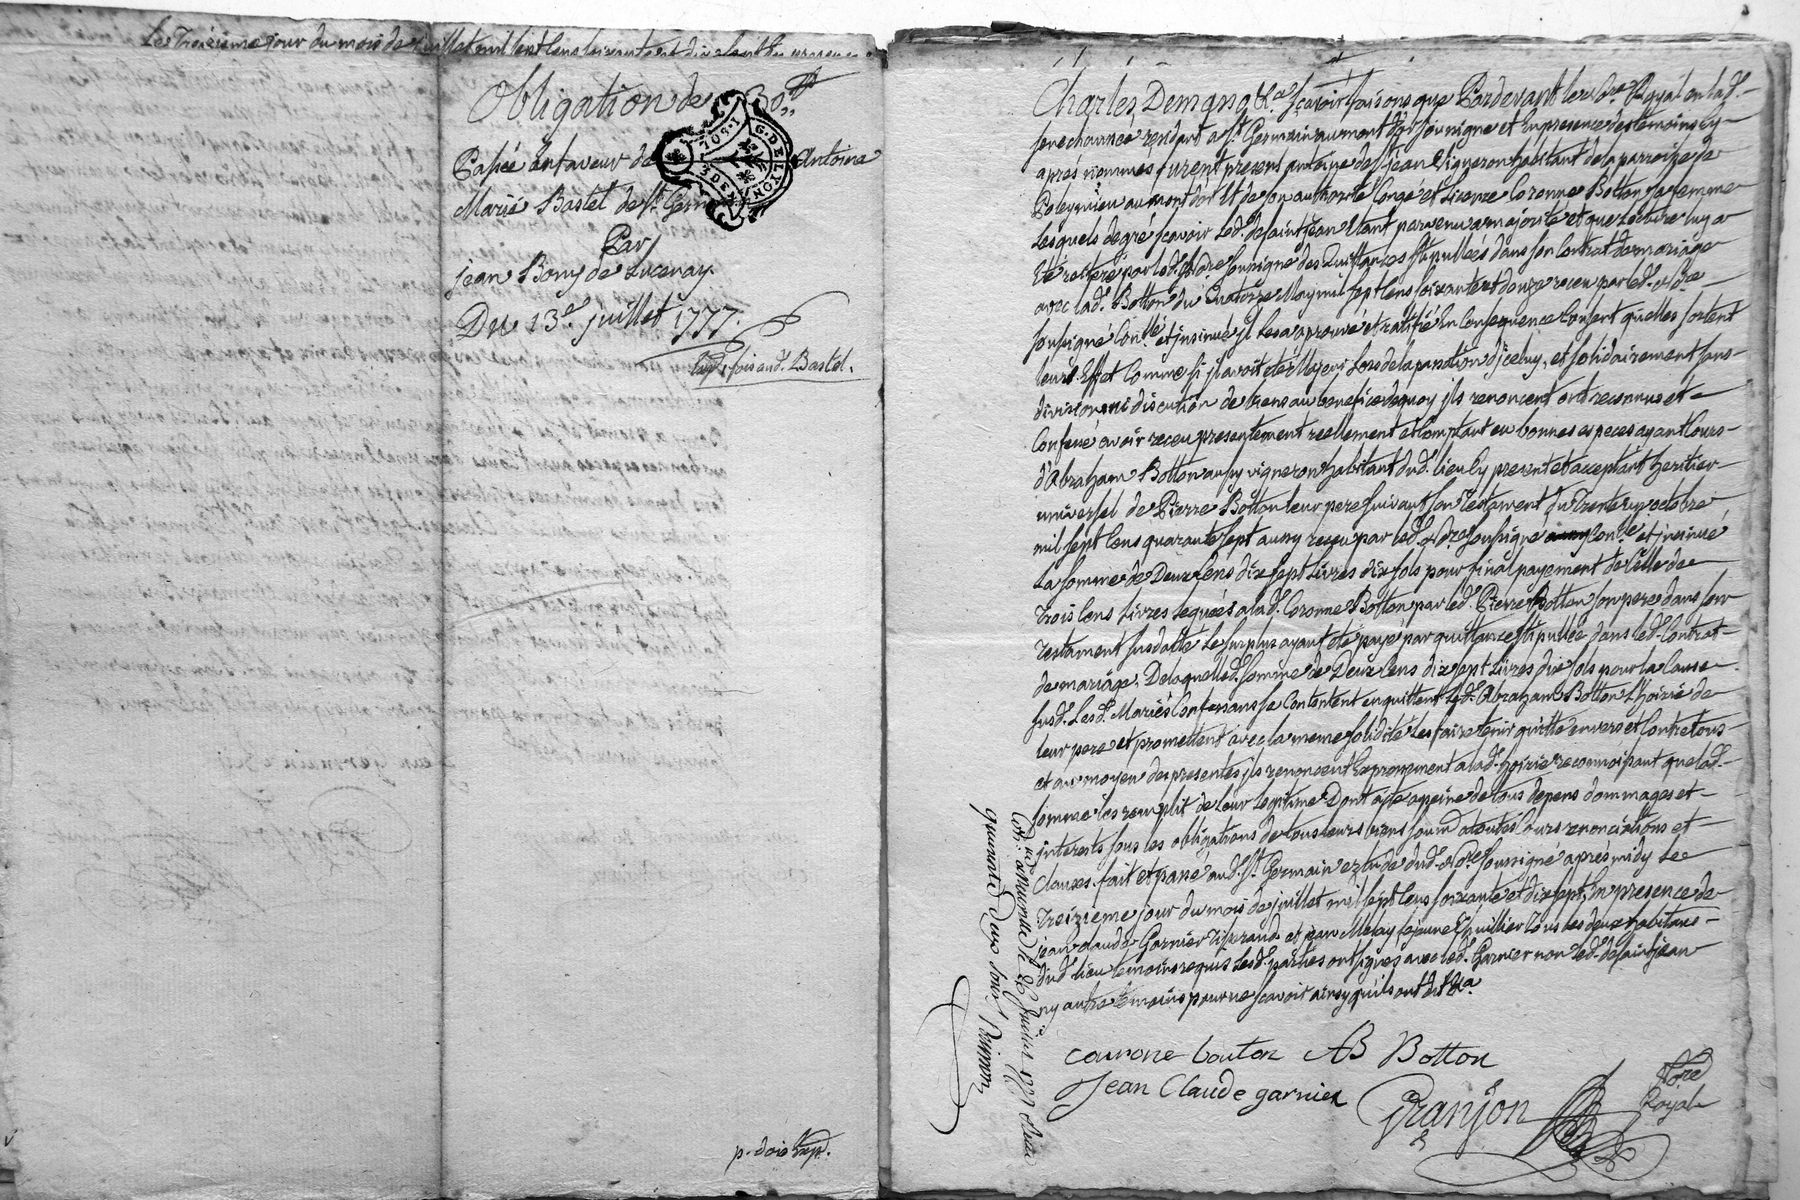 Le Treizieme jour du mois de juillet mil sept cens soixante et dix sept
Obligation de 30 ₶
Passée en faveur de Antoine
Marie Bastel de St. Germ
Par
jean Bony de Lucenay
Du 13e. juillet 1777.
Exp. fois aud. Bastel.
p. dois Exp.
G. DE LYON
Charles Demqna &ca. scavoir faisons que Pardevant le no.re Royal en lad.
senechaussée residant a St. Germain au mont d'or soussigne et En presence des temoins cy
après nommes furent presens antoine de St jean Vigneron habitant de la parroisse de
Poleymieu au mont d'or Et de son authorité Congé et licence Coronne Botton sa femme
Lesquels de gré scavoir led. de saint jean Etant parvenu a majorité et que Lecture luy a
été reiteré par led. No.re soussigne des Quittances stipullées dans son Contrat de mariage
avec lad. Botton du Quatorze May mil sept Cens soixante et douze receu par led. No.re
soussigné Con.llé et jnsinué jl les a aprouvé et ratiffié En Consequence Consent quelles sortent
leurs Effet Comme si jl avoit été Majeur Lors de la passation d'jcelluy, et solidairement sans
division ni discution de biens au benefice de quoy jls renoncent ont reconnus et
Confessé avoir receu presentement reellement et Comptant en bonnes especes ayant Cours
d'Abraham Botton aussy vigneron habitant dud. lieu Cy present et acceptant heritier
universel de Pierre Botton leur pere suivant son Testament du Trente un octobre
mil sept Cens quarante sept aussy receu par led. No.re soussigné Con.lé et jnsinué
La somme de Deux Cens dix sept Livres dix sols pour final payement de Celle de
Trois Cens Livres leguées a lad. Coronne Botton par led. Pierre Botton son pere dans son
Testament susdatté Le surplus ayant été payé par quittance stipullée dans led. Contrat
de mariage. De laquelle d. somme de Deux Cens dix sept Livres dix sols pour la Cause
susd. Les d. Mariés Confessans se Contentent en quittent led. Abraham Botton L'hoirie de
leur pere et promettent avec la meme solidité Les faire tenir quitte envers et Contre tous
et au moyen des presentes jls renoncent Expressement a lad. hoirie reconnoissant que lad.
somme les remplit de leur legitime Dont acte a peine de tous depens dommages et
interests sous les obligations de tous leurs biens soum. a toutes Cours renonciations et
Clauses. fait et passé aud. St. Germain ez Etude dud. No.re soussigné après midy Le
Treizieme jour du mois de juillet mil sept Cens soixante et dix sept, En presence de
jean claude Garnier Tisserand et jean Melay le jeune Tuillier tous les deux habitans
dud. lieu temoins requis Lesd. parties ont signés avec led. Garnier non led. de saint jean
ny autre temoins pour ne scavoir ainsy qu'ils ont dit &ca.
courone bouton AB Botton
Jean Claude garnier Granjon
No.re
Royal